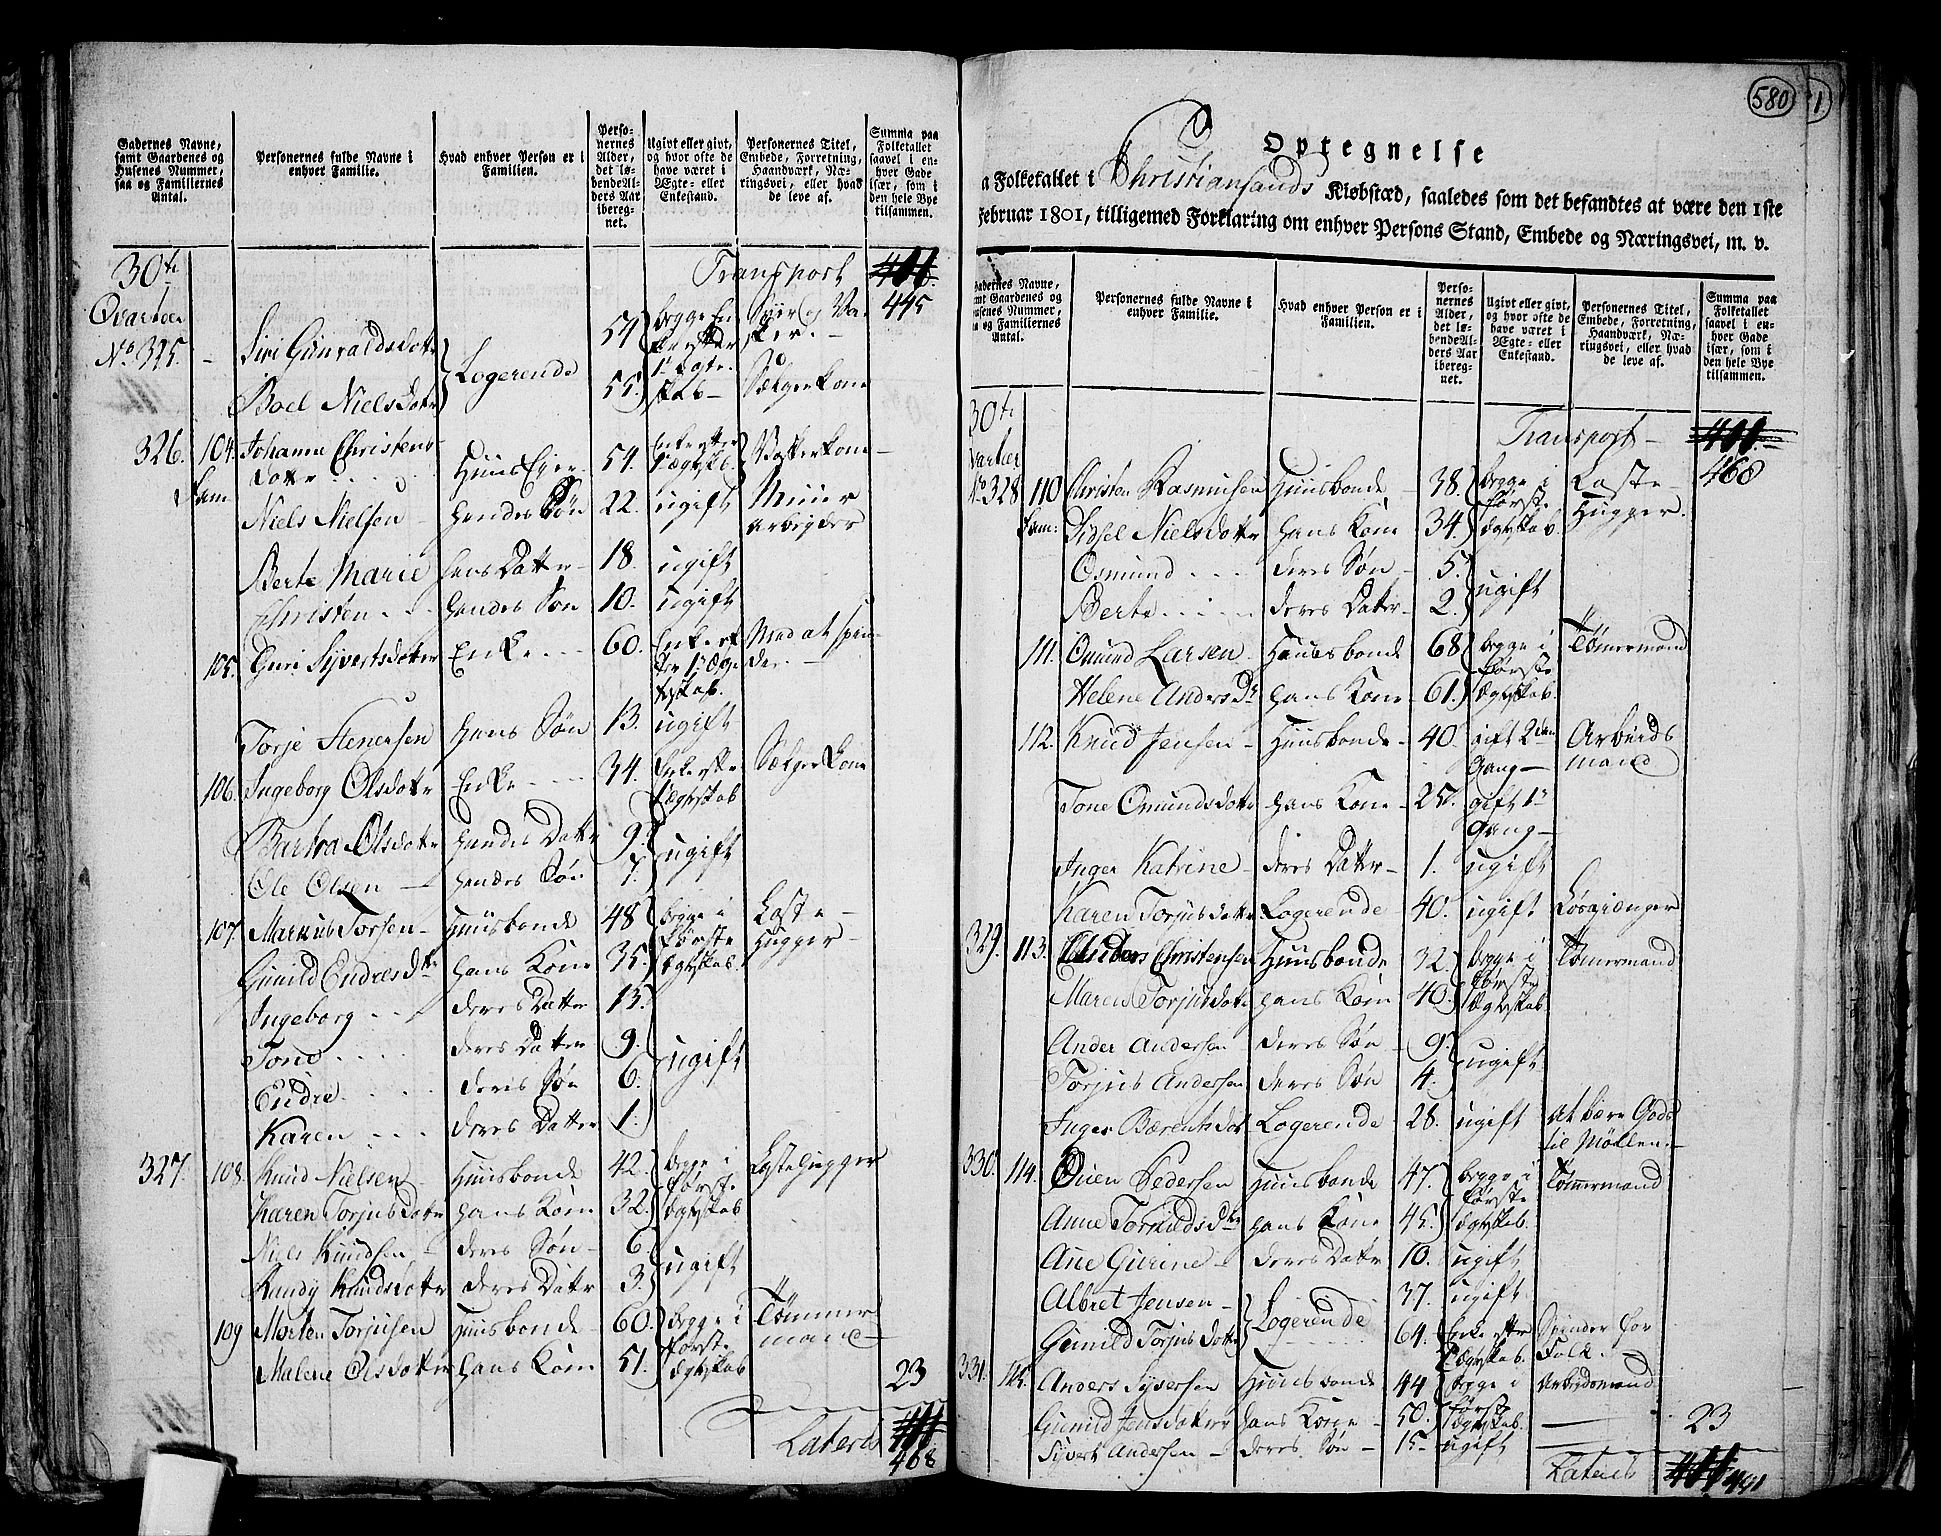 Gadernes Navne, samt Gaardenes og Husenes Nummer, saa og Familiernes Antal.
Personernes fulde Navne i enhver Familie.
Hvad enhver Person er i Familien.
Personernes Alder, det løbende Alders Aar iberegnet.
Ugivt eller givt, og hvor ofte de have været i Ægte- eller Enkestand.
Personernes Titel, Embede, Forretning, Haandværk, Næringsvei, eller hvad de leve af.
Summa paa Folketallet saavel i enhver Gade især, som i den hele Bye tilsammen.
30te Transport
Qvarteer 445
No 325 Siri Gunvaldsdotr 54
Boel Nielsdotr Logerende 55 Sælgerkone
326. 104 Johanne Christens-
dotr Huus Ejer 54. Vasker kone
Fam. Niels Nielsen hendes Søn 22. ugift
Berte Marie hans Datter 18. ugift
Christen hendes Søn 10. ugift
105. Guri Syvertsdotr Enke 60. Med at spin-
der.
Torje Stenersen hans Søn 13. ugift
106. Ingeborg Olsdotr Enke 34. Sælger Kone
Barbra Olsdotr hendes Dattr 9.
Ole Olsen hendes Søn 7. ugift
107. Markus Torsen Huusbonde 48 begge i Laste-
Gunild Endresdtr hans Kone 35. første Ægteskab. Hugger
Ingeborg deres Dattr 15.
Tone deres Datter 9.
Endre deres Søn 6. ugift
Karen deres Datter 1.
327. 108 Knud Nielsen Huusbonde 42. begge i Lastehugger
Karen Torjusdotr hans Kone 32. første Ægteskab
Niels Knudsen deres Søn 6.
Randy Knudsdotr deres Dattr 3. ugift
109 Morten Torjusen Huusbonde 60. begge i Tømmer
Malene Olsdotter hans Kone 51. første Ægteskab mand
23
Lateris
468
580
1
Optegnelse
a Folketallet i Christiansands Kiøbstæd, saaledes som det befandtes at være den 1ste
Februar 1801, tilligemed Forklaring om enhver Persons Stand, Embede og Næringsvei, m. v.
Gadernes Navne, samt Gaardenes og Husenes Nummer, saa og Familiernes Antal.
Personernes fulde Navne i enhver Familie.
Hvad enhver Person er i Familien.
Personernes Alder, det løbende Alders Aar iberegnet.
Ugivt eller givt, og hvor ofte de have været i Ægte- eller Enkestand.
Personernes Titel, Embede, Forretning, Haandværk, Næringsvei, eller hvad de leve af.
Summa paa Folketallet saavel i enhver Gade især, som i den hele Bye tilsammen.
30te Transport
varteer 468
No 328 110 Christen Rasmusen Huusbonde 38. begge i Laste-
Fam: Sidsel Nielsdotr hans Kone 34. første Ægteskab. Hugger.
Osmund deres Søn 5.
Berte deres Datter 2. ugift
111. Omund Larsen Huusbonde 68 begge i Tømermand
Helene Andersdr hans Kone 61. første Ægteskab.
112. Knud Jensen Huusbonde 40. gift 2den Arbeids
Gang mand
Tone Omundsdotr hans Kone 25. gift 1r
Gang
Inger Katrine deres Datter 1. ugift
Karen Torjusdotr Logerende 40. ugift
329. 113. Anders Christensen Huusbonde 32. begge i Tømermand
Maren Torjusdotr hans Kone 40. første Ægteskab.
Ander Andersen deres Søn 9.
Torjus Andersen deres Søn 4. ugift
Inger Bærentsdot Logerende 28. ugift at bære Gods
til Møllen
330. 114. Ouen Pedersen Huusbonde 47. begge i Tømmermand
Anne hans Kone 45. første Ægteskab.
Ane Gurine deres Dattr 10. ugift
Albret Jensen 37. ugift
Gunild Torjusdotr Logerende 64. Spinder for
Folk.
331. 115. Anders Syversen Huusbonde 44 begge i Arbeydsmand
Gunild Jensdotter hans Kone 50. første Ægteskab.
Syvert Andersen deres Søn 15 ugift
23
Lateris
491